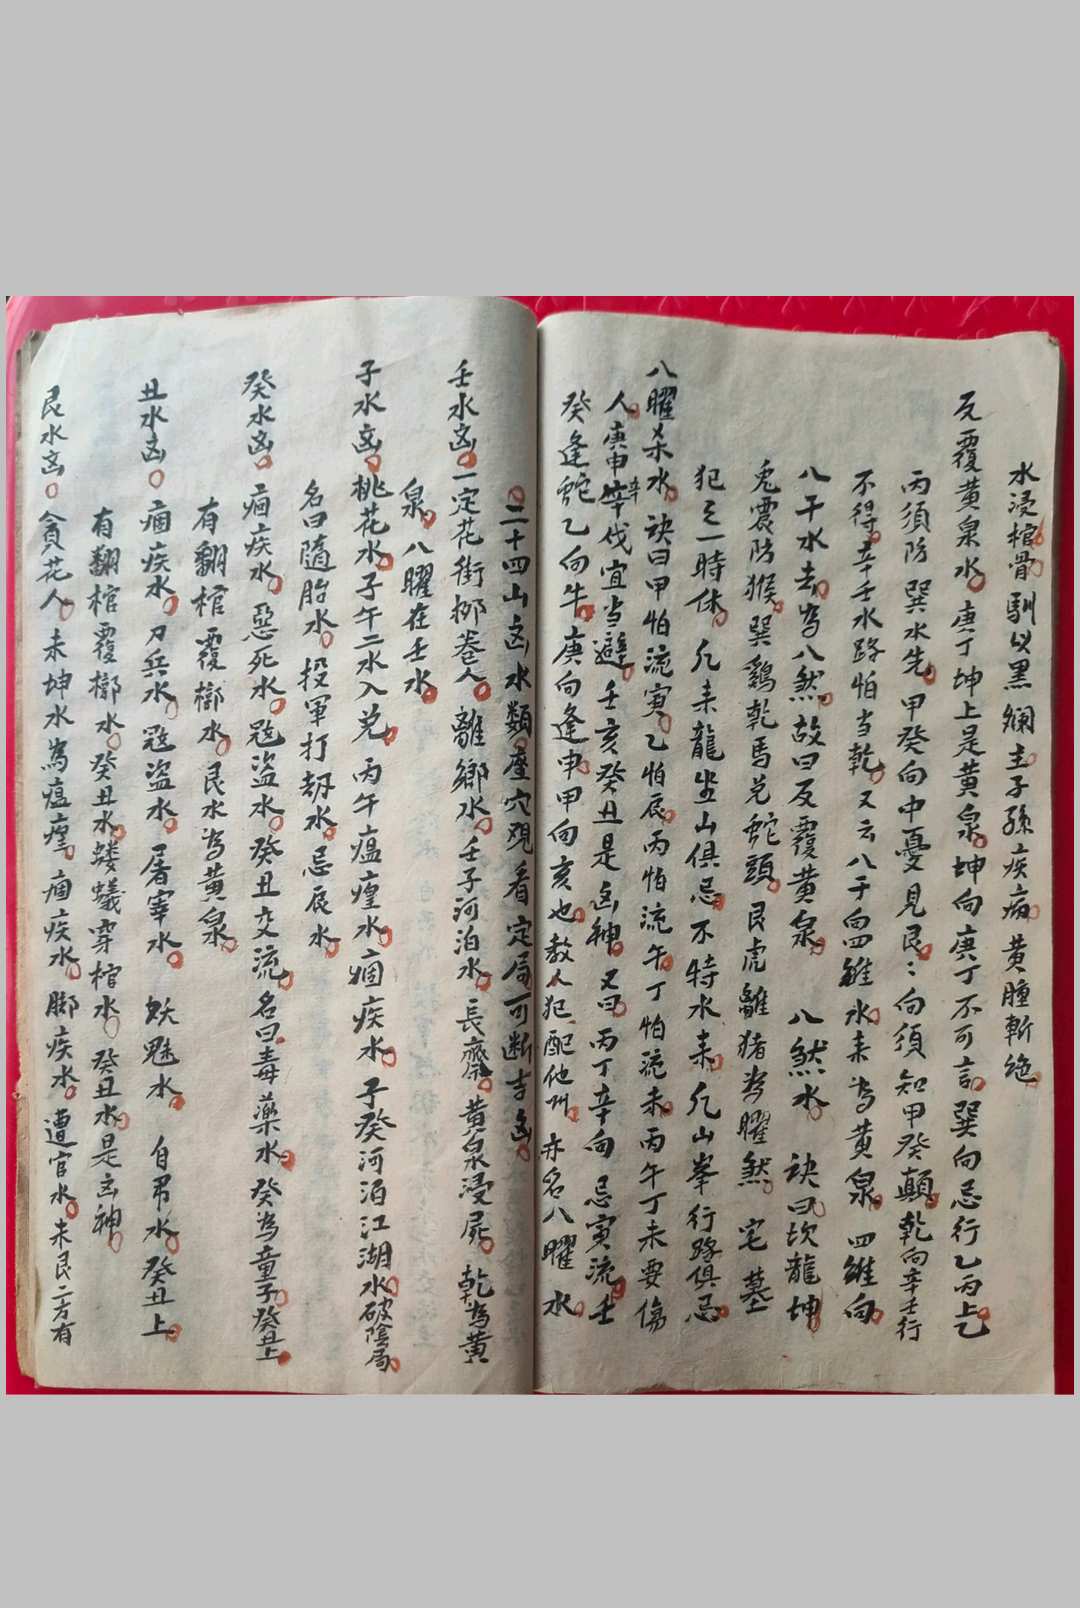 水浸棺骨馴以黑斓主子孫疾病黄腫斬絶
反覆黄泉水庚丁坤上是黄泉坤向庚丁不可言巽向忌行乙丙上乙
丙須防巽水先甲癸向中憂見艮艮向須知甲癸顛乾向辛壬行
不得辛壬水路怕当乾又云八干向四維水来為黄泉四維向
八干水去為八煞故曰反覆黄泉 八煞水 訣曰坎龍坤
兎震防猴巽鷄乾馬兑蛇頭艮虎離猪為曜煞 宅墓
犯之一時休凡来龍坐山俱忌不特水来凡山峯行路俱忌
八曜杀水訣曰甲怕流寅乙怕辰丙怕流午丁怕流未丙午丁未要傷
人庚申辛伐宜当避壬亥癸丑是凶神又曰丙丁辛向忌寅流壬
癸逢蛇乙向牛庚向逢申甲向亥也教人犯配他州亦名八曜水
二十四山凶水類座穴观看定局可断吉凶
壬水凶一定花街柳巷人離鄉水壬子河泊水長齋黄泉浸屍乾為黄
泉八曜在壬水
子水凶桃花水子午二水入兑丙午瘟瘟水痼疾水子癸河泊江湖水破陰局
名曰隨胎水投軍打劫水忌辰水
癸水凶痼疾水惡死水冦盗水癸丑交流名曰毒藥水癸為童子癸丑上
有翻棺覆槨水艮水為黄泉
丑水凶痼疾水刀兵水冦盗水屠宰水妖魅水自吊水癸丑上
有翻棺覆槨水癸丑水螻蟻穿棺水癸丑水是凶神
艮水凶貪花人未坤水為瘟㾮痼疾水脚疾水遭官水未艮二方有